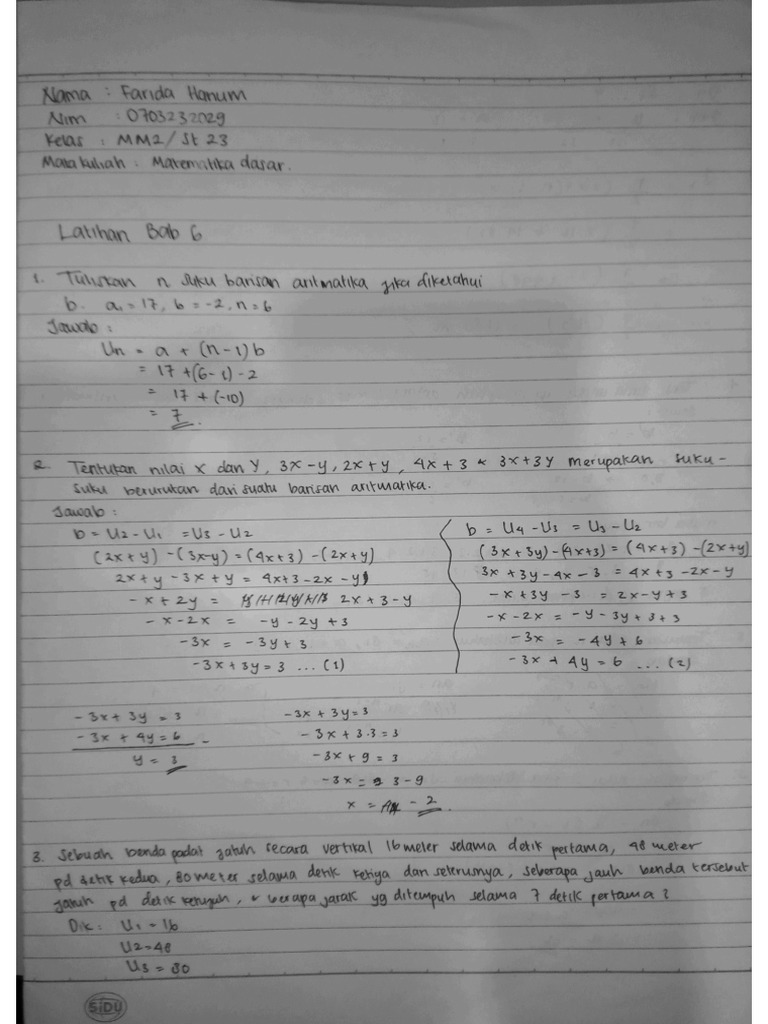 Nama : Farida Hanum
Nim : 0703232029
Kelas : MM2/ St 23
Mata kuliah : Matematika dasar.
Latihan Bab 6
1. Tuliskan n suku barisan aritmatika jika diketahui
b. a₁ = 17, b = -2, n = 6
Jawab :
Un = a + (n-1) b
= 17 + (6-1) -2
= 17 + (-10)
= 7
2. Tentukan nilai x dan y, 3x-y, 2x+y, 4x+3 & 3x+3y merupakan suku-
suku berurutan dari suatu barisan aritmatika.
Jawab :
b = U2 - U1 = U3 - U2
(2x+y) - (3x-y) = (4x+3) - (2x+y)
2x+y - 3x + y = 4x+3 - 2x - y
-x + 2y = 2x + 3 - y
-x - 2x = -y - 2y + 3
-3x = -3y + 3
-3x + 3y = 3 ... (1)
b = U4 - U3 = U3 - U2
(3x + 3y) - (4x+3) = (4x+3) - (2x+y)
3x + 3y - 4x - 3 = 4x + 3 - 2x - y
-x + 3y - 3 = 2x - y + 3
-x - 2x = -y - 3y + 3 + 3
-3x = -4y + 6
-3x + 4y = 6 ... (2)
-3x + 3y = 3
-3x + 4y = 6 -
y = 3
-3x + 3y = 3
-3x + 3.3 = 3
-3x + 9 = 3
-3x = 3 - 9
x = - 2
3. Sebuah benda padat jatuh secara vertikal 16 meter selama detik pertama, 48 meter
pd detik kedua, 80 meter selama detik ketiga dan seterusnya, seberapa jauh benda tersebut
jatuh pd detik ketujuh, & berapa jarak yg ditempuh selama 7 detik pertama ?
Dik : U1 = 16
U2 = 48
U3 = 80
SiDU